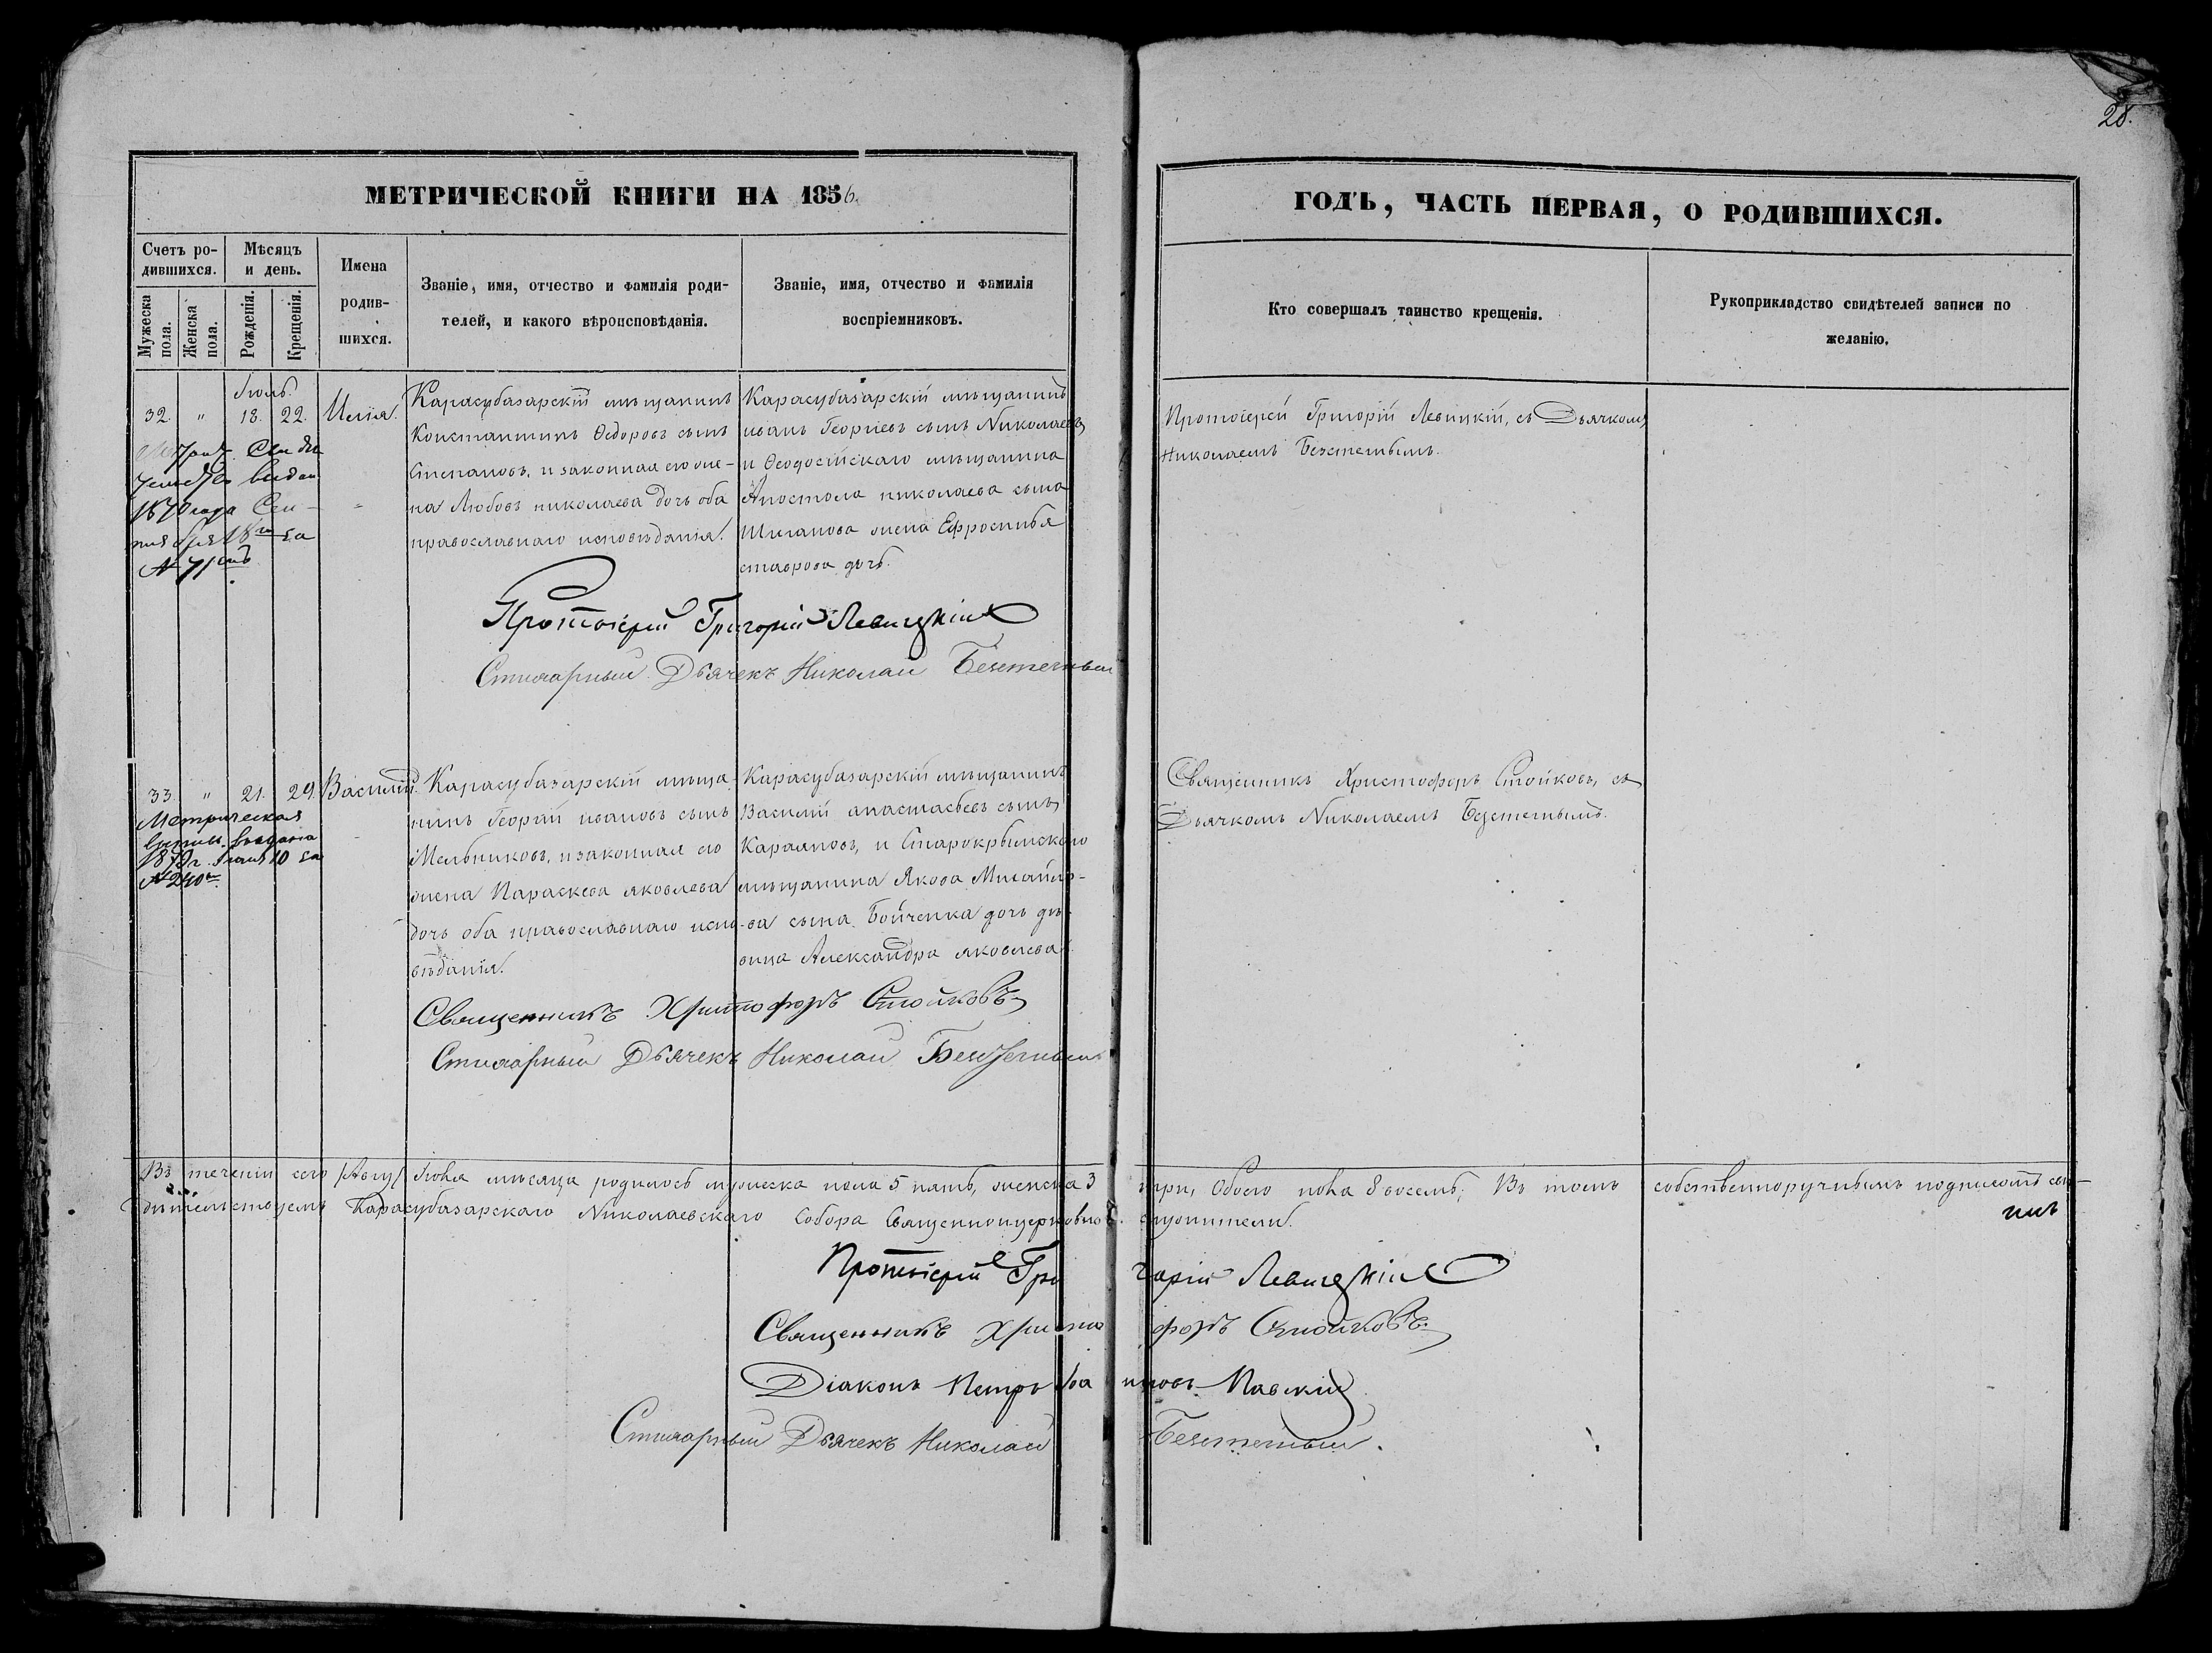 28.
МЕТРИЧЕСКОЙ КНИГИ НА 1856.
ГОДЪ, ЧАСТЬ ПЕРВАЯ, О РОДИВШИХСЯ.
Счетъ ро-
дившихся.
Мужеска пола.
Женска пола.
Мѣсяцъ
и день.
Рожденія.
Крещенія.
Имена
родив-
шихся.
Званіе, имя, отчество и фамилія роди-
телей, и какого вѣроисповѣданія.
Званіе, имя, отчество и фамилія
воспріемниковъ.
Кто совершалъ таинство крещенія.
Рукоприкладство свидѣтелей записи по
желанію.
Іюль.
32. " 18. 22. Илія.
1870 года Сен-
тября 18го за
№ 71мъ
Карасубазарскій мѣщанинъ
Константинъ Ѳедоровъ сынъ
Степановъ, и законная его же-
на Любовь николаева дочь оба
православнаго исповѣданія.
Карасубазарскій мѣщанинъ
иванъ Георгіевъ сынъ Николаевъ,
и Ѳеодосійскаго мѣщанина
Апостола николаева сына
Шишанова жена Ефросинья
ставрова дочь.
Протоіерей Григорій Левицкій, съ Дьячкомъ
Николаемъ Безстетнымъ.
Протоіерей Григорій Левицкій
Стихарный Дьячекъ Николай
33. " 21. 29. Василій.
Метрическая
выдана
10 за
№ 240м.
Карасубазарскій мѣща-
нинъ Георгій ивановъ сынъ
Мельниковъ, и законная его
жена Параскева яковлева
дочь оба православнаго испо-
вѣданія.
Карасубазарскій мѣщанинъ
Василій анастасьевъ сынъ
Караяновъ, и Старокрымскаго
мѣщанина Якова Михайло-
ва сына Бойченка дочь дѣ-
вица Александра яковлева.
Священникъ Христофоръ Стойковъ, съ
Дьячкомъ Николаемъ Безстетнымъ.
Священникъ Христофоръ Стойковъ
Стихарный Дьячекъ Николай
Въ теченіи сего Іюля мѣсяца родилось мужеска пола 5 пять, женска 3 три, Обоего пола 8 восемь; Въ томъ собственноручнымъ подписомъ сви-
дѣтельствуемъ Карасубазарскаго Николаевскаго Собора Священноцерковно- служители.
Протоіерей Григорій Левицкій
Священникъ Христофоръ Стойковъ
Діаконъ Петръ Ивановъ Павскій
Стихарный Дьячекъ Николай